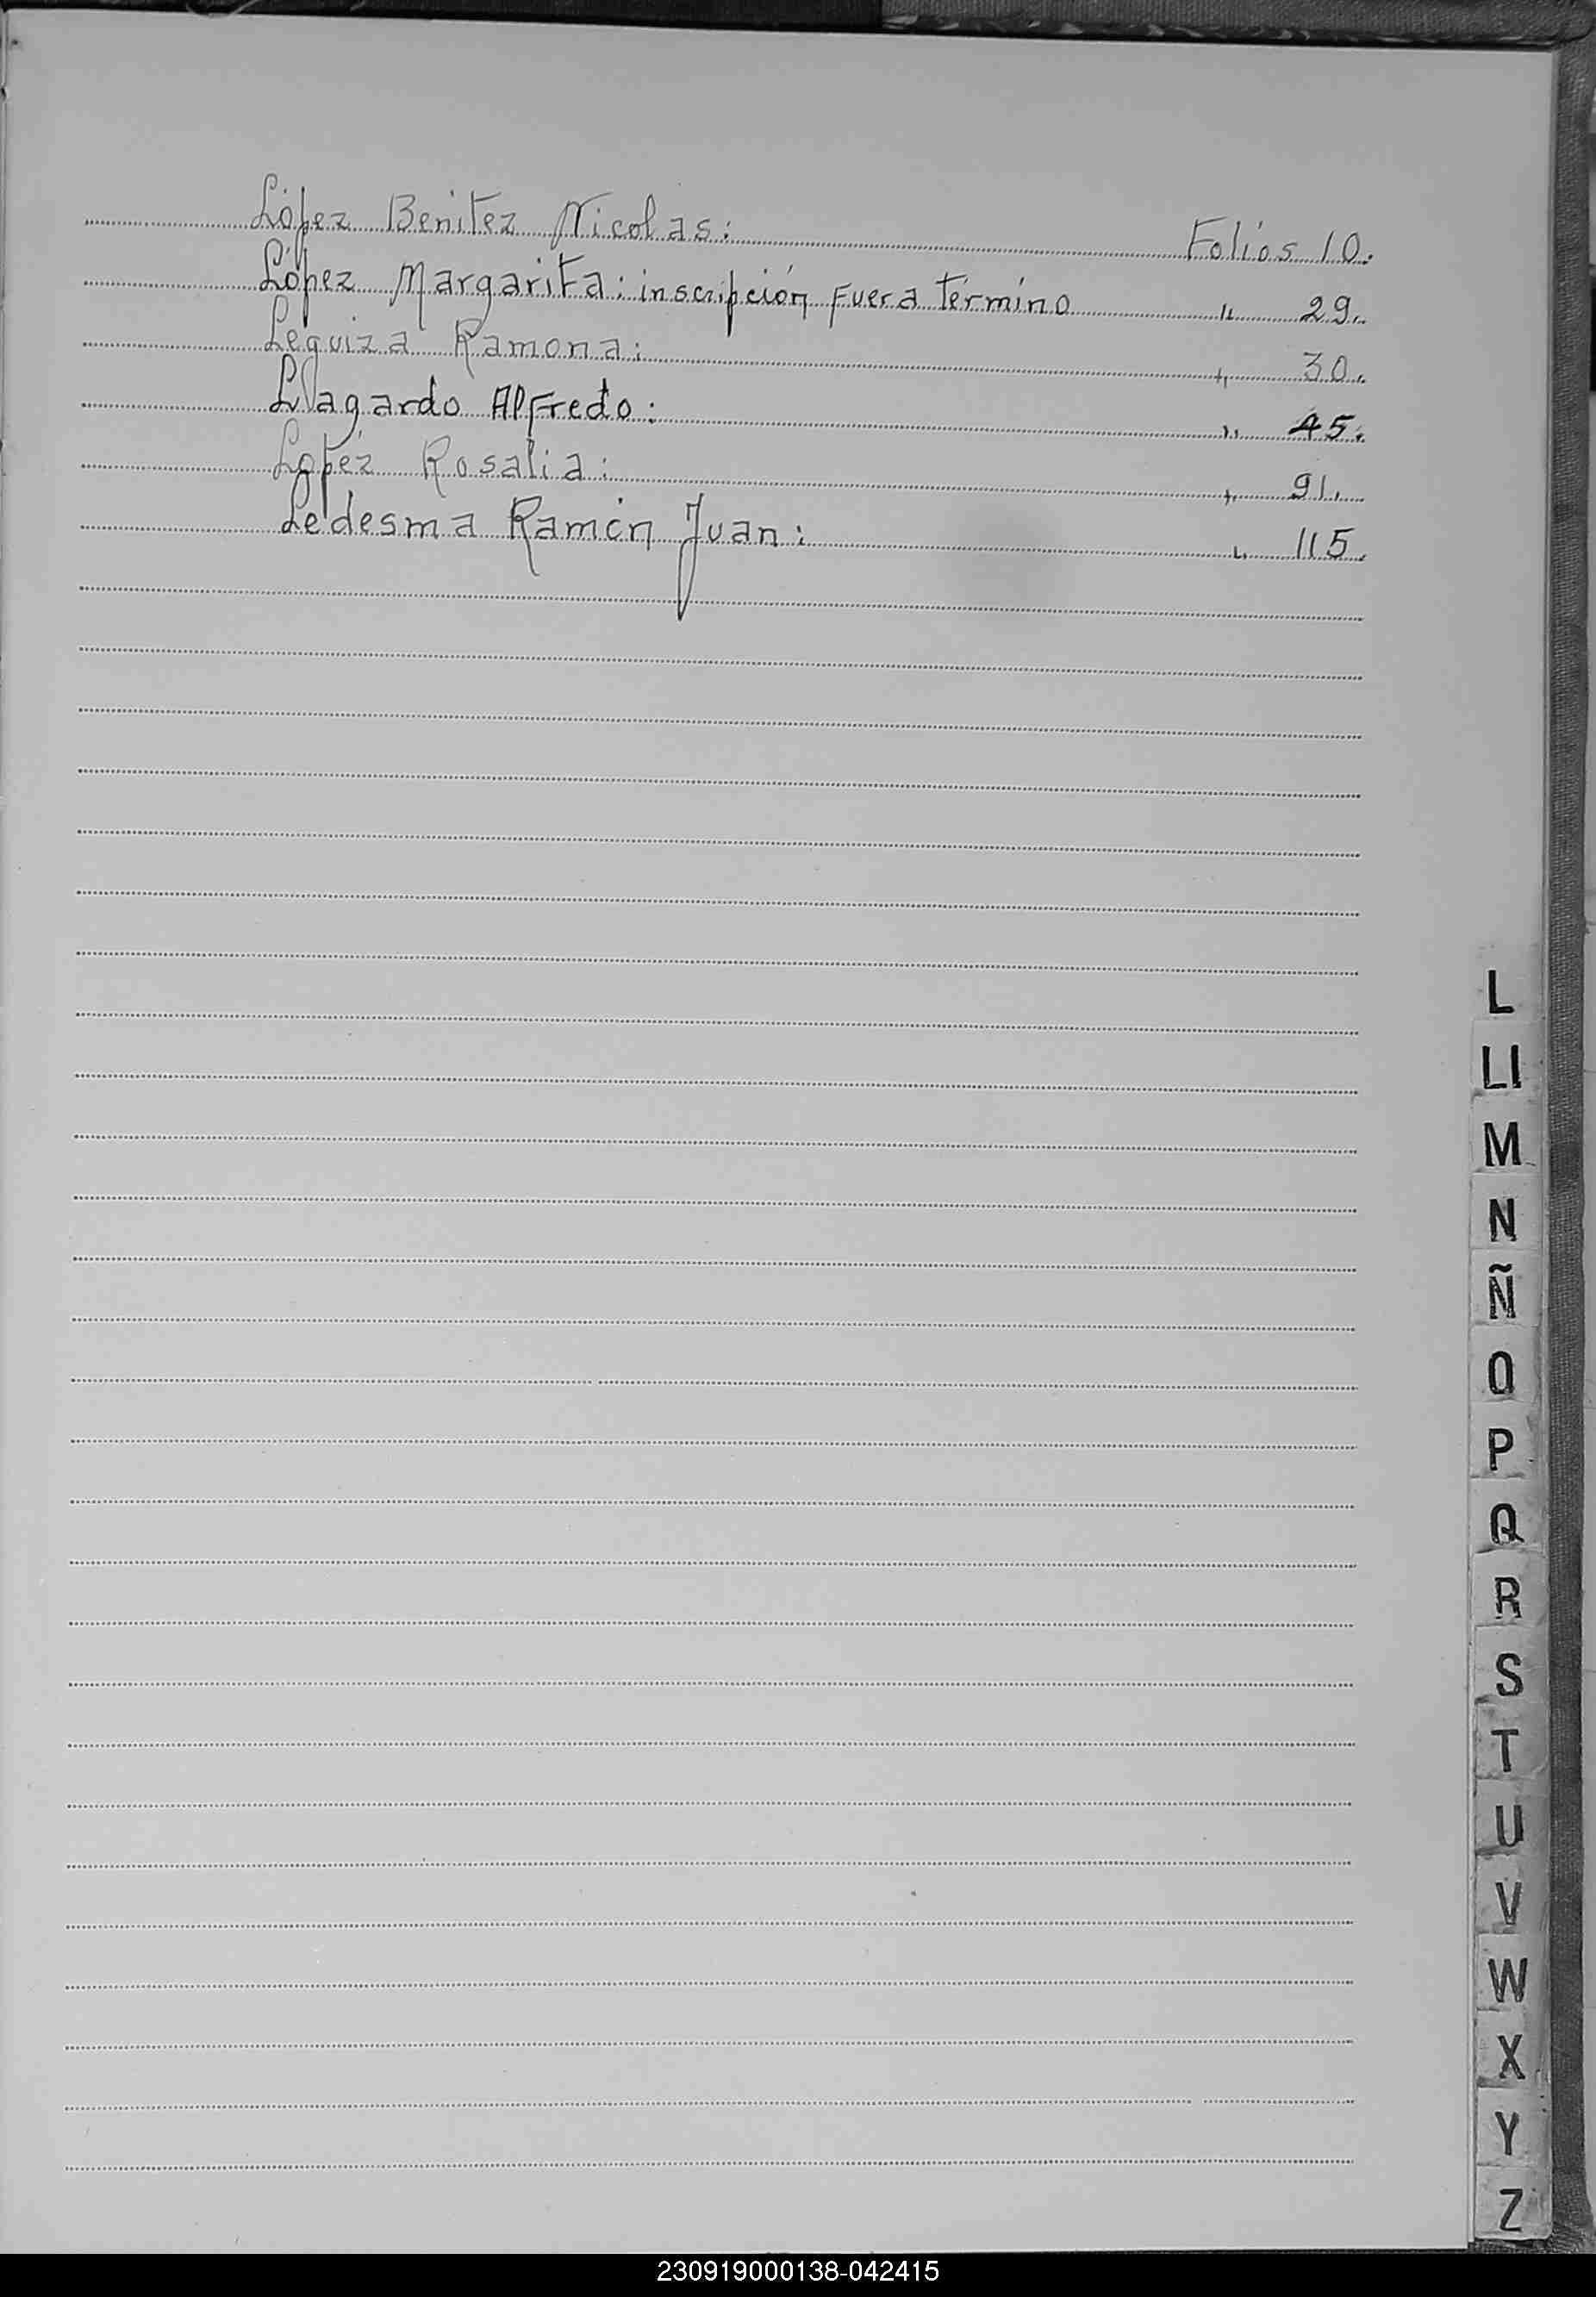 López Benitez Nicolas: Folios 10.
López Margarita: inscripción Fuera Término " 29.
Leguiza Ramona: " 30.
Llagardo Alfredo: " 45.
López Rosalia: " 91.
Ledesma Ramón Juan: " 115.
L
Ll
M
N
Ñ
O
P
Q
R
S
T
U
V
W
X
Y
Z
230919000138-042415